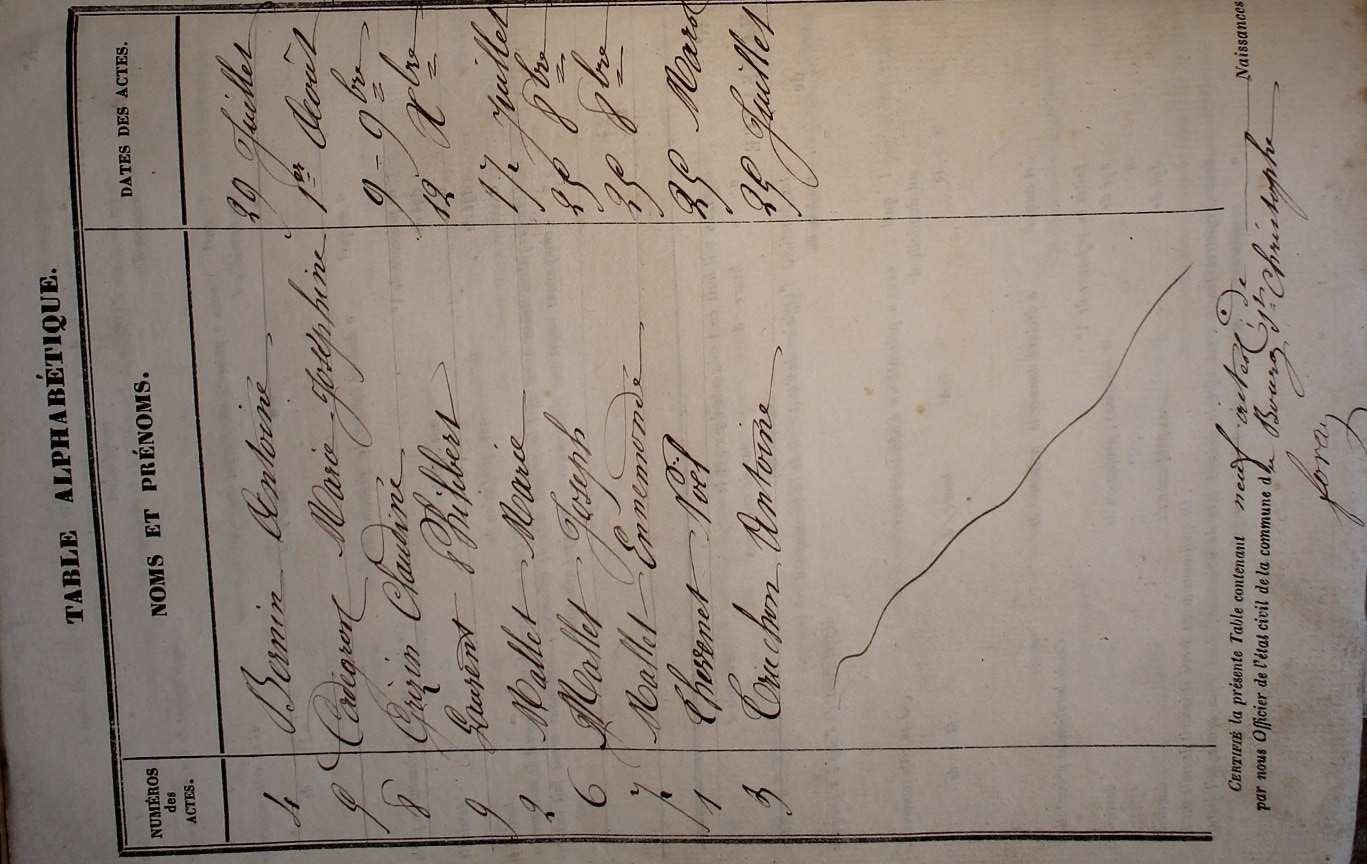 TABLE ALPHABÉTIQUE.
NUMÉROS des ACTES. NOMS ET PRÉNOMS. DATES DES ACTES.
4 Bernin Antoine 29 Juillet
5 Marie Josephine 1er Août
8 Grizin Claudine 9 9bre
9 Laurent Philibert 12 Xbre
2 Mallet Marie 17 Juillet
6 Mallet Joseph 25 8bre
7 Mallet Ennemonde 25 8bre
1 Thevenet Noël 25 Mars
3 Truchon Antoine 25 Juillet
CERTIFIÉ la présente Table contenant neuf actes de Naissances
par nous Officier de l'état civil de la commune de Bourg St Christophe